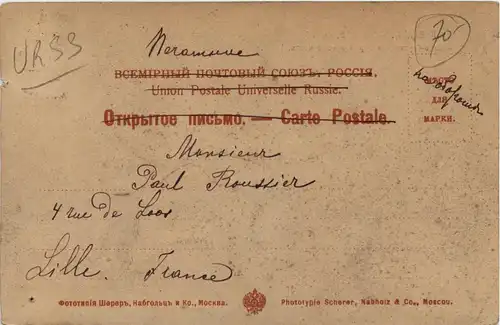 URSS
Печатное
70
ВСЕМІРНЫЙ ПОЧТОВЫЙ СОЮЗЪ. РОССІЯ.
Union Postale Universelle Russie.
Открытое письмо. — Carte Postale.
МѢСТО
ДЛЯ
МАРКИ.
на оборотѣ
Monsieur
Paul Roussier
4 rue de Loos
Lille. France
Фототипія Шереръ, Набгольцъ и Ко., Москва.
Phototypie Scherer, Nabholz & Co., Moscou.